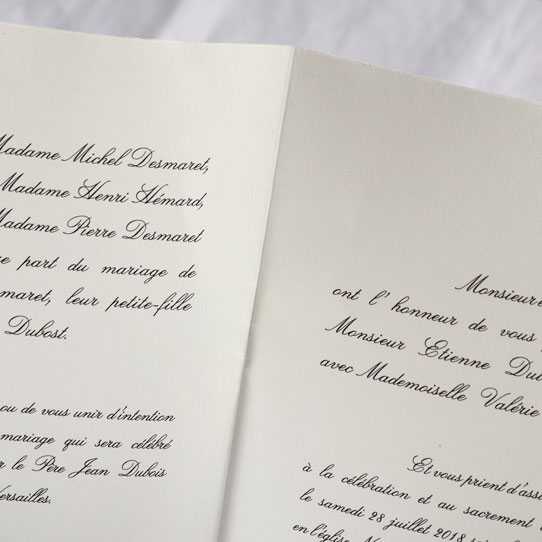 Madame Michel Desmaret,
Madame Henri Hémard,
Madame Pierre Desmaret
part du mariage de
leur petite-fille
Dubost.
ou de vous unir d'intention
mariage qui sera célébré
le Père Jean Dubois
Versailles.
Monsieur
ont l'honneur de vous
Monsieur Etienne
avec Mademoiselle Valérie
Et vous prient
à la célébration et au sacrement
le samedi 28 juillet 2018
en l'église